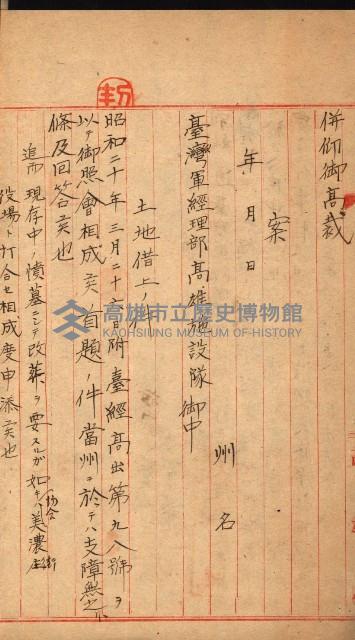 併仰御高裁
案
年　月　日
州　名
臺灣軍經理部高雄施設隊 御中
土地借上ノ件
昭和二十年三月二十六日附臺經高出第九八號ヲ
以テ御照會相成候首題ノ件當州ニ於テハ支障無之
條及回答候也
追而現存中ノ墳墓ニシテ改葬ヲ要スルガ如キ場合ハ美濃庄
役場ト打合セ相成度申添候也
高雄市立歷史博物館
KAOHSIUNG MUSEUM OF HISTORY